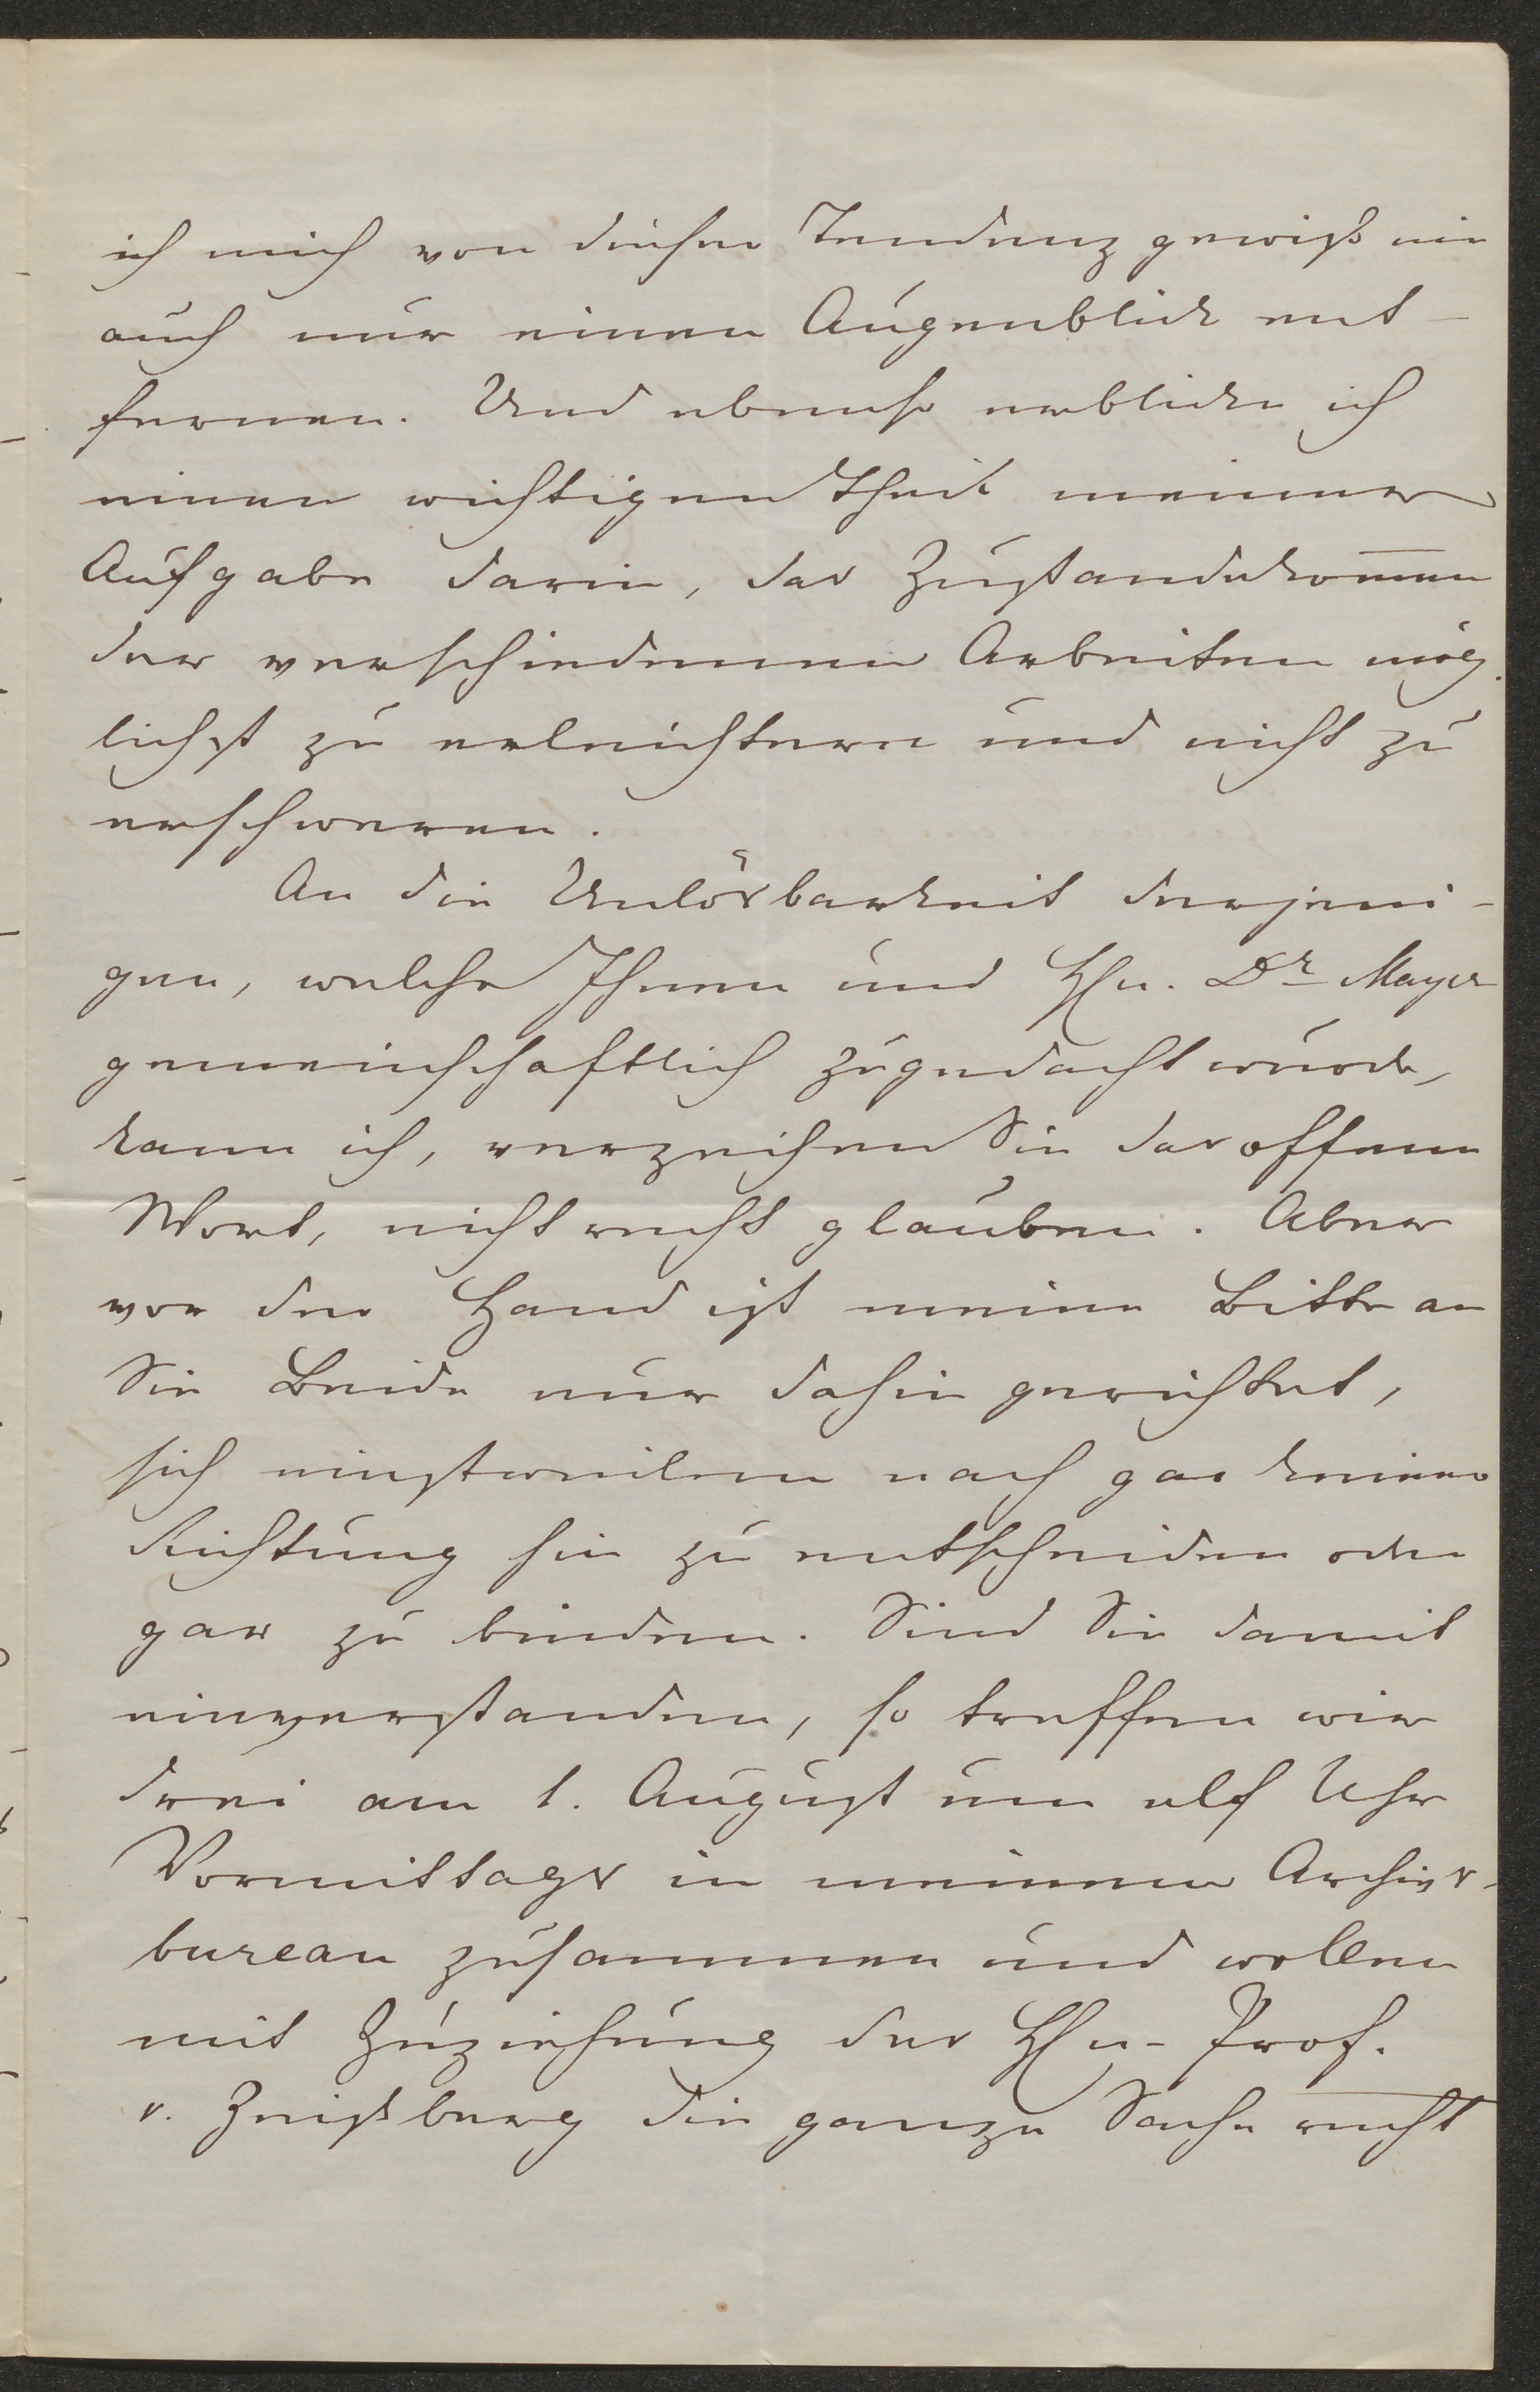 ich mich von dieser Tendenz gewiß nie
auch nur einen Augenblick ent-
fernen. Und ebenso erblicke ich
einen wichtigen Theil meiner
Aufgabe darin, das Zustandekom̅en
der verschiedenen Arbeiten mög-
lichst zu erleichtern und nicht zu
erschweren.
An die Unlösbarkeit derjeni-
gen, welche Ihnen und Hn. Dr Mayer
gemeinschaftlich zugedacht wurde,
kann ich, verzeihen Sie das offene
Wort, nicht recht glauben. Aber
vor der Hand ist meine Bitte an
Sie Beide nur dahin gerichtet,
sich einstweilen nach gar keiner
Richtung hin zu entscheiden oder
gar zu binden. Sind Sie damit
einverstanden, so treffen wir
drei am 1. August um elf Uhr
Vormittags in meinem Archivs-
bureau zusammen und wollen
mit Zuziehung des Hn. Prof.
v. Zeißberg die ganze Sache recht